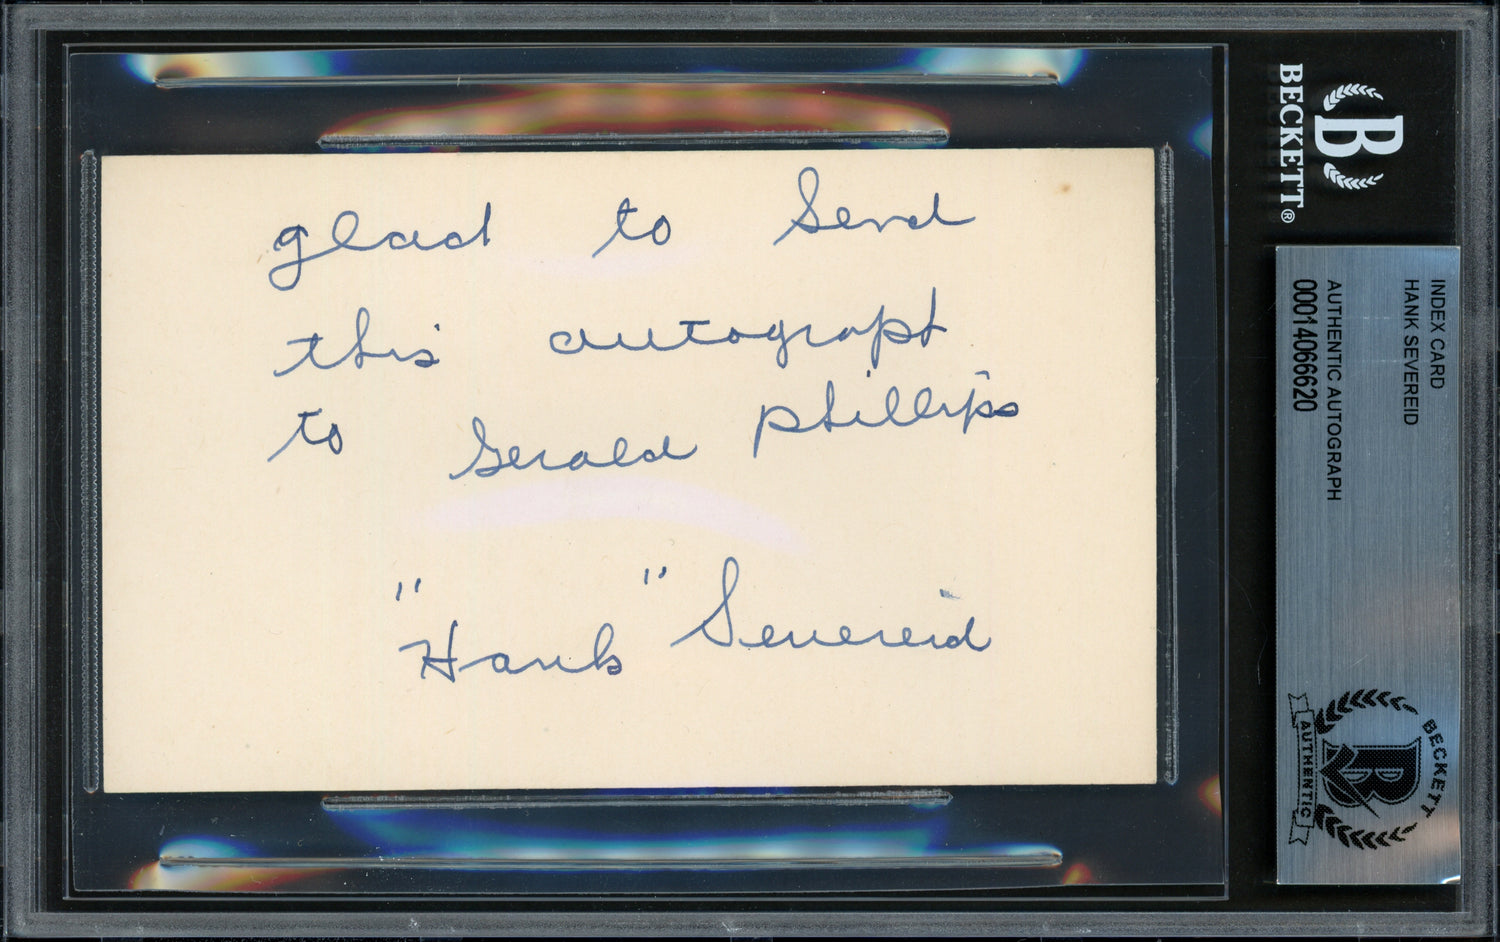 glad to Send
this autograpt
to Gerald phillips
"Hank" Severeid
BECKETT®
B
INDEX CARD
HANK SEVEREID
AUTHENTIC AUTOGRAPH
00014066620
BECKETT
B
AUTHENTIC